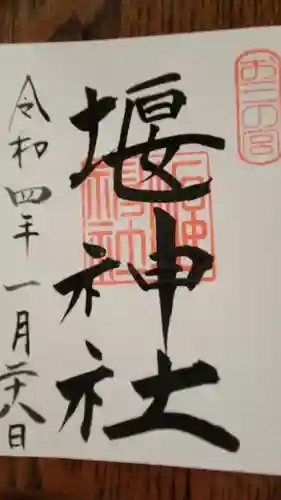 お三の宮
堰神社
令和四年一月二十八日